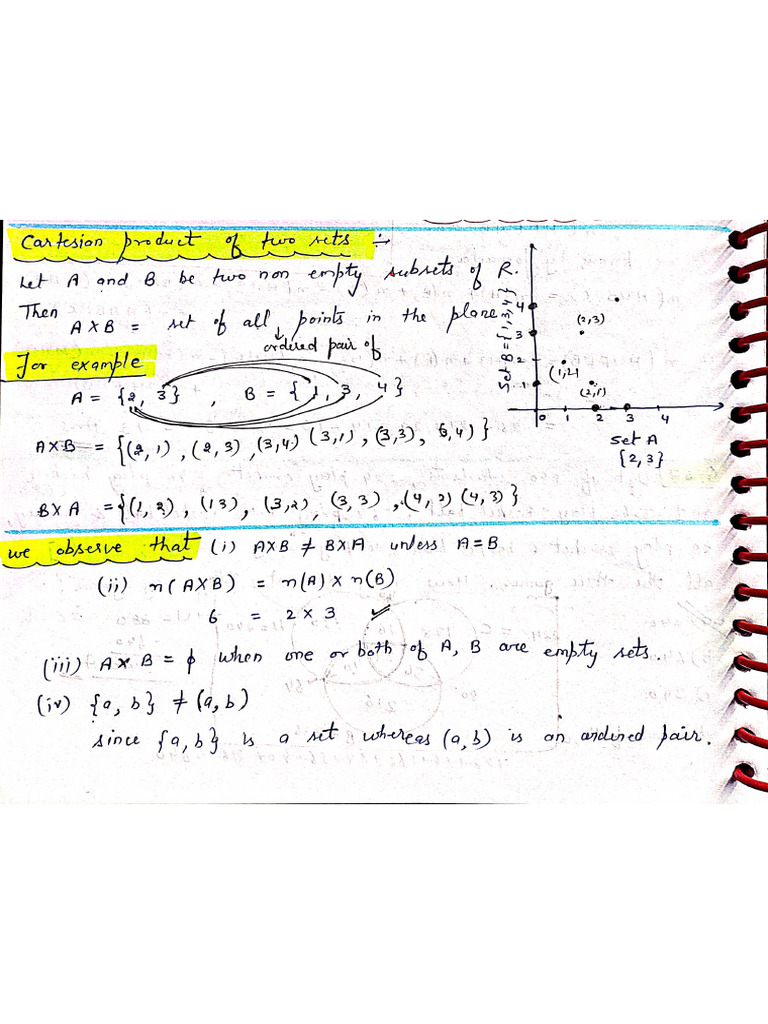 Cartesion product of two sets :-
Let A and B be two non empty subsets of R.
Then A X B = set of all points in the plane
ordered pair of
For example
A = {2, 3} , B = {1, 3, 4}
A X B = {(2, 1) , (2, 3) , (3,4) (3,1) , (3,3) , (3,4)}
B X A = {(1, 2) , (1 3) , (3,2) , (3, 3) , (4, 2) (4, 3)}
Set B = {1,3,4}
4
3
2
1
(2,3)
(1,2)
(2,1)
0 1 2 3 4
Set A
{2,3}
we observe that (i) AXB ≠ BXA unless A=B
(ii) n(AXB) = n(A) X n(B)
6 = 2 X 3 ✓
(iii) A X B = ϕ when one or both of A, B are empty sets.
(iv) {a, b} ≠ (a, b)
since {a, b} is a set whereas (a, b) is an ordered pair.